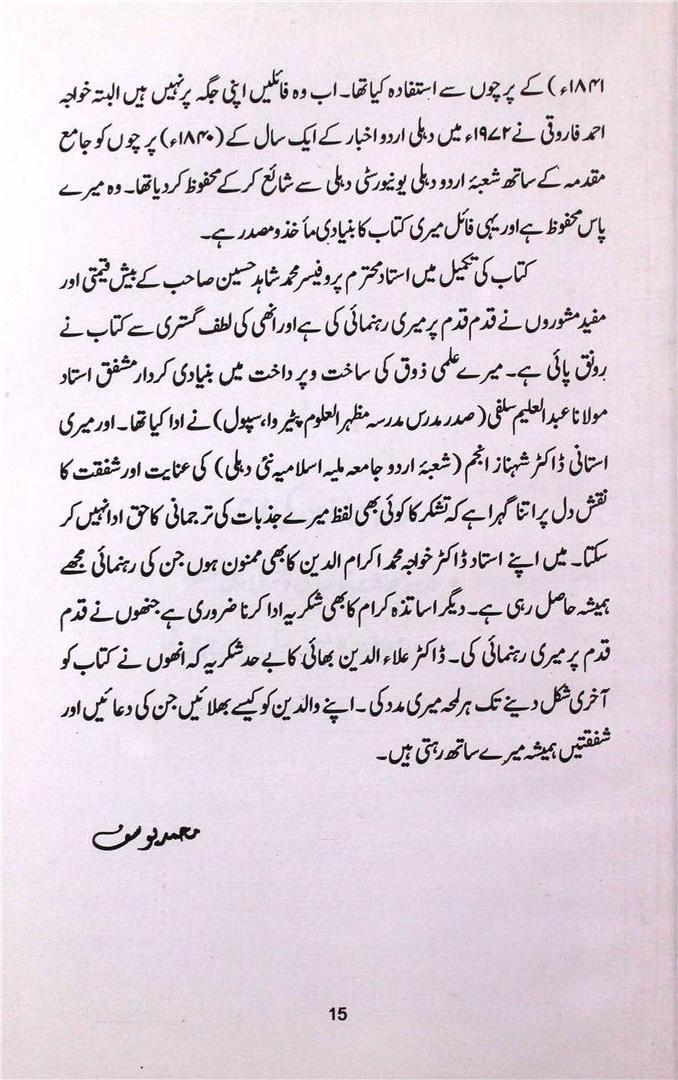 ۱۸۴۱ء) کے پرچوں سے استفادہ کیا تھا۔ اب وہ فائلیں اپنی جگہ پر نہیں ہیں البتہ خواجہ
احمد فاروقی نے ۱۹۷۲ء میں دہلی اردو اخبار کے ایک سال کے (۱۸۴۰ء) پرچوں کو جامع
مقدمہ کے ساتھ شعبۂ اردو دہلی یونیورسٹی دہلی سے شائع کر کے محفوظ کر دیا تھا۔ وہ میرے
پاس محفوظ ہے اور یہی فائل میری کتاب کا بنیادی مأخذ و مصدر ہے۔
کتاب کی تکمیل میں استاد محترم پروفیسر محمد شاہد حسین صاحب کے بیش قیمتی اور
مفید مشوروں نے قدم قدم پر میری رہنمائی کی ہے اور انھی کی لطف گستری سے کتاب نے
رونق پائی ہے۔ میرے علمی ذوق کی ساخت و پرداخت میں بنیادی کردار مشفق استاد
مولانا عبد العلیم سلفی (صدر مدرس مدرسہ مظہر العلوم پٹیروا، سپول) نے ادا کیا تھا۔ اور میری
استانی ڈاکٹر شہناز انجم (شعبۂ اردو جامعہ ملیہ اسلامیہ نئی دہلی) کی عنایت اور شفقت کا
نقش دل پر اتنا گہرا ہے کہ تشکر کا کوئی بھی لفظ میرے جذبات کی ترجمانی کا حق ادا نہیں کر
سکتا۔ میں اپنے استاد ڈاکٹر خواجہ محمد اکرام الدین کا بھی ممنون ہوں جن کی رہنمائی مجھے
ہمیشہ حاصل رہی ہے۔ دیگر اساتذہ کرام کا بھی شکریہ ادا کرنا ضروری ہے جنھوں نے قدم
قدم پر میری رہنمائی کی۔ ڈاکٹر علاء الدین بھائی کا بے حد شکریہ کہ انھوں نے کتاب کو
آخری شکل دینے تک ہر لمحہ میری مدد کی۔ اپنے والدین کو کیسے بھلائیں جن کی دعائیں اور
شفقتیں ہمیشہ میرے ساتھ رہتی ہیں۔
محمد یوسف
15